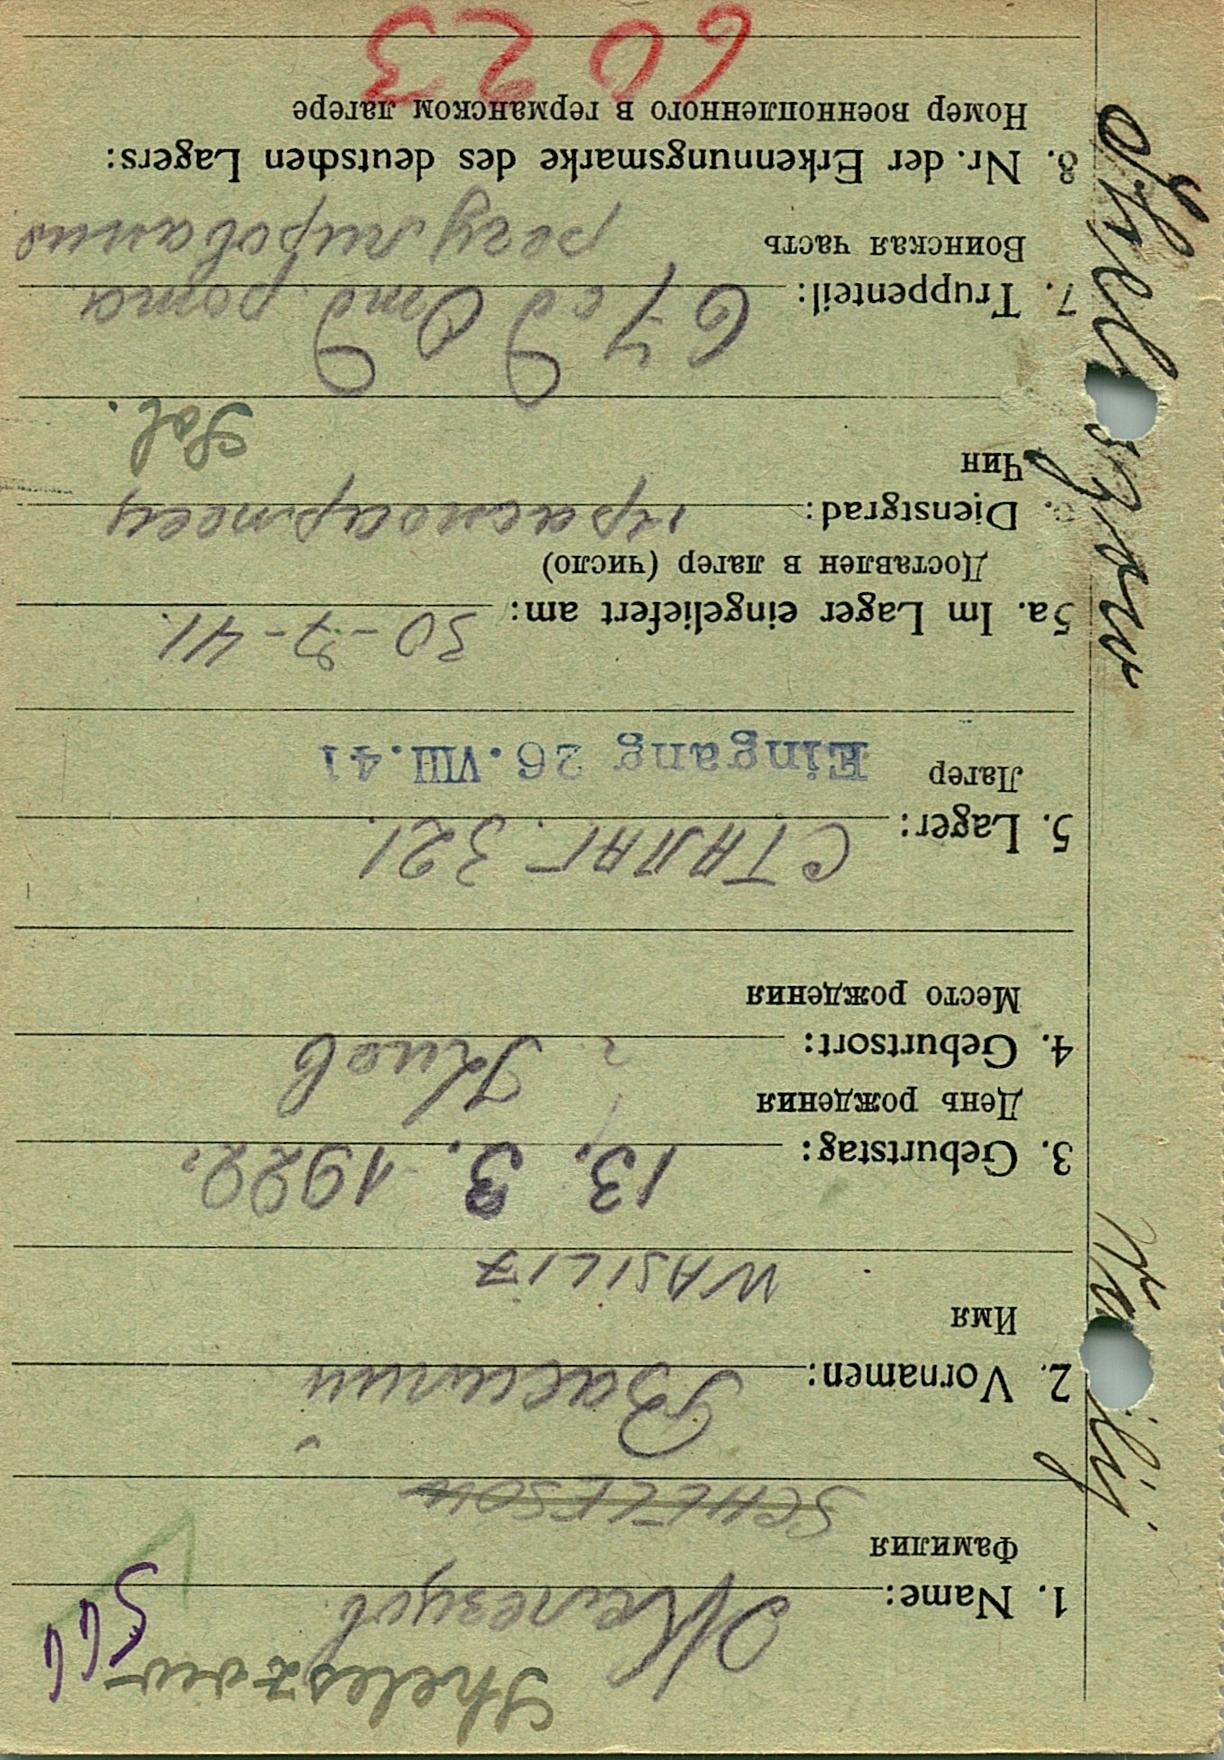 Shelesow
566
1. Name: Железуов
Фамилия
SCHELESOW
2. Vornamen: Василий
Имя
WASILIJ
3. Geburtstag: 13. 3. 1922г
День рождения
4. Geburtsort: г. Киев
Место рождения
5. Lager: СТАЛАГ-321.
Лагер
Eingang 26.VIII.41
5a. Im Lager eingeliefert am: 30-7-41.
Доставлен в лагер (число)
Dienstgrad: красноармеец
Чин
Sol.
7. Truppenteil: 67 сд Отд рота
Воинская часть
регулирования
8. Nr. der Erkennungsmarke des deutschen Lagers:
Номер военнопленного в германском лагере
6023